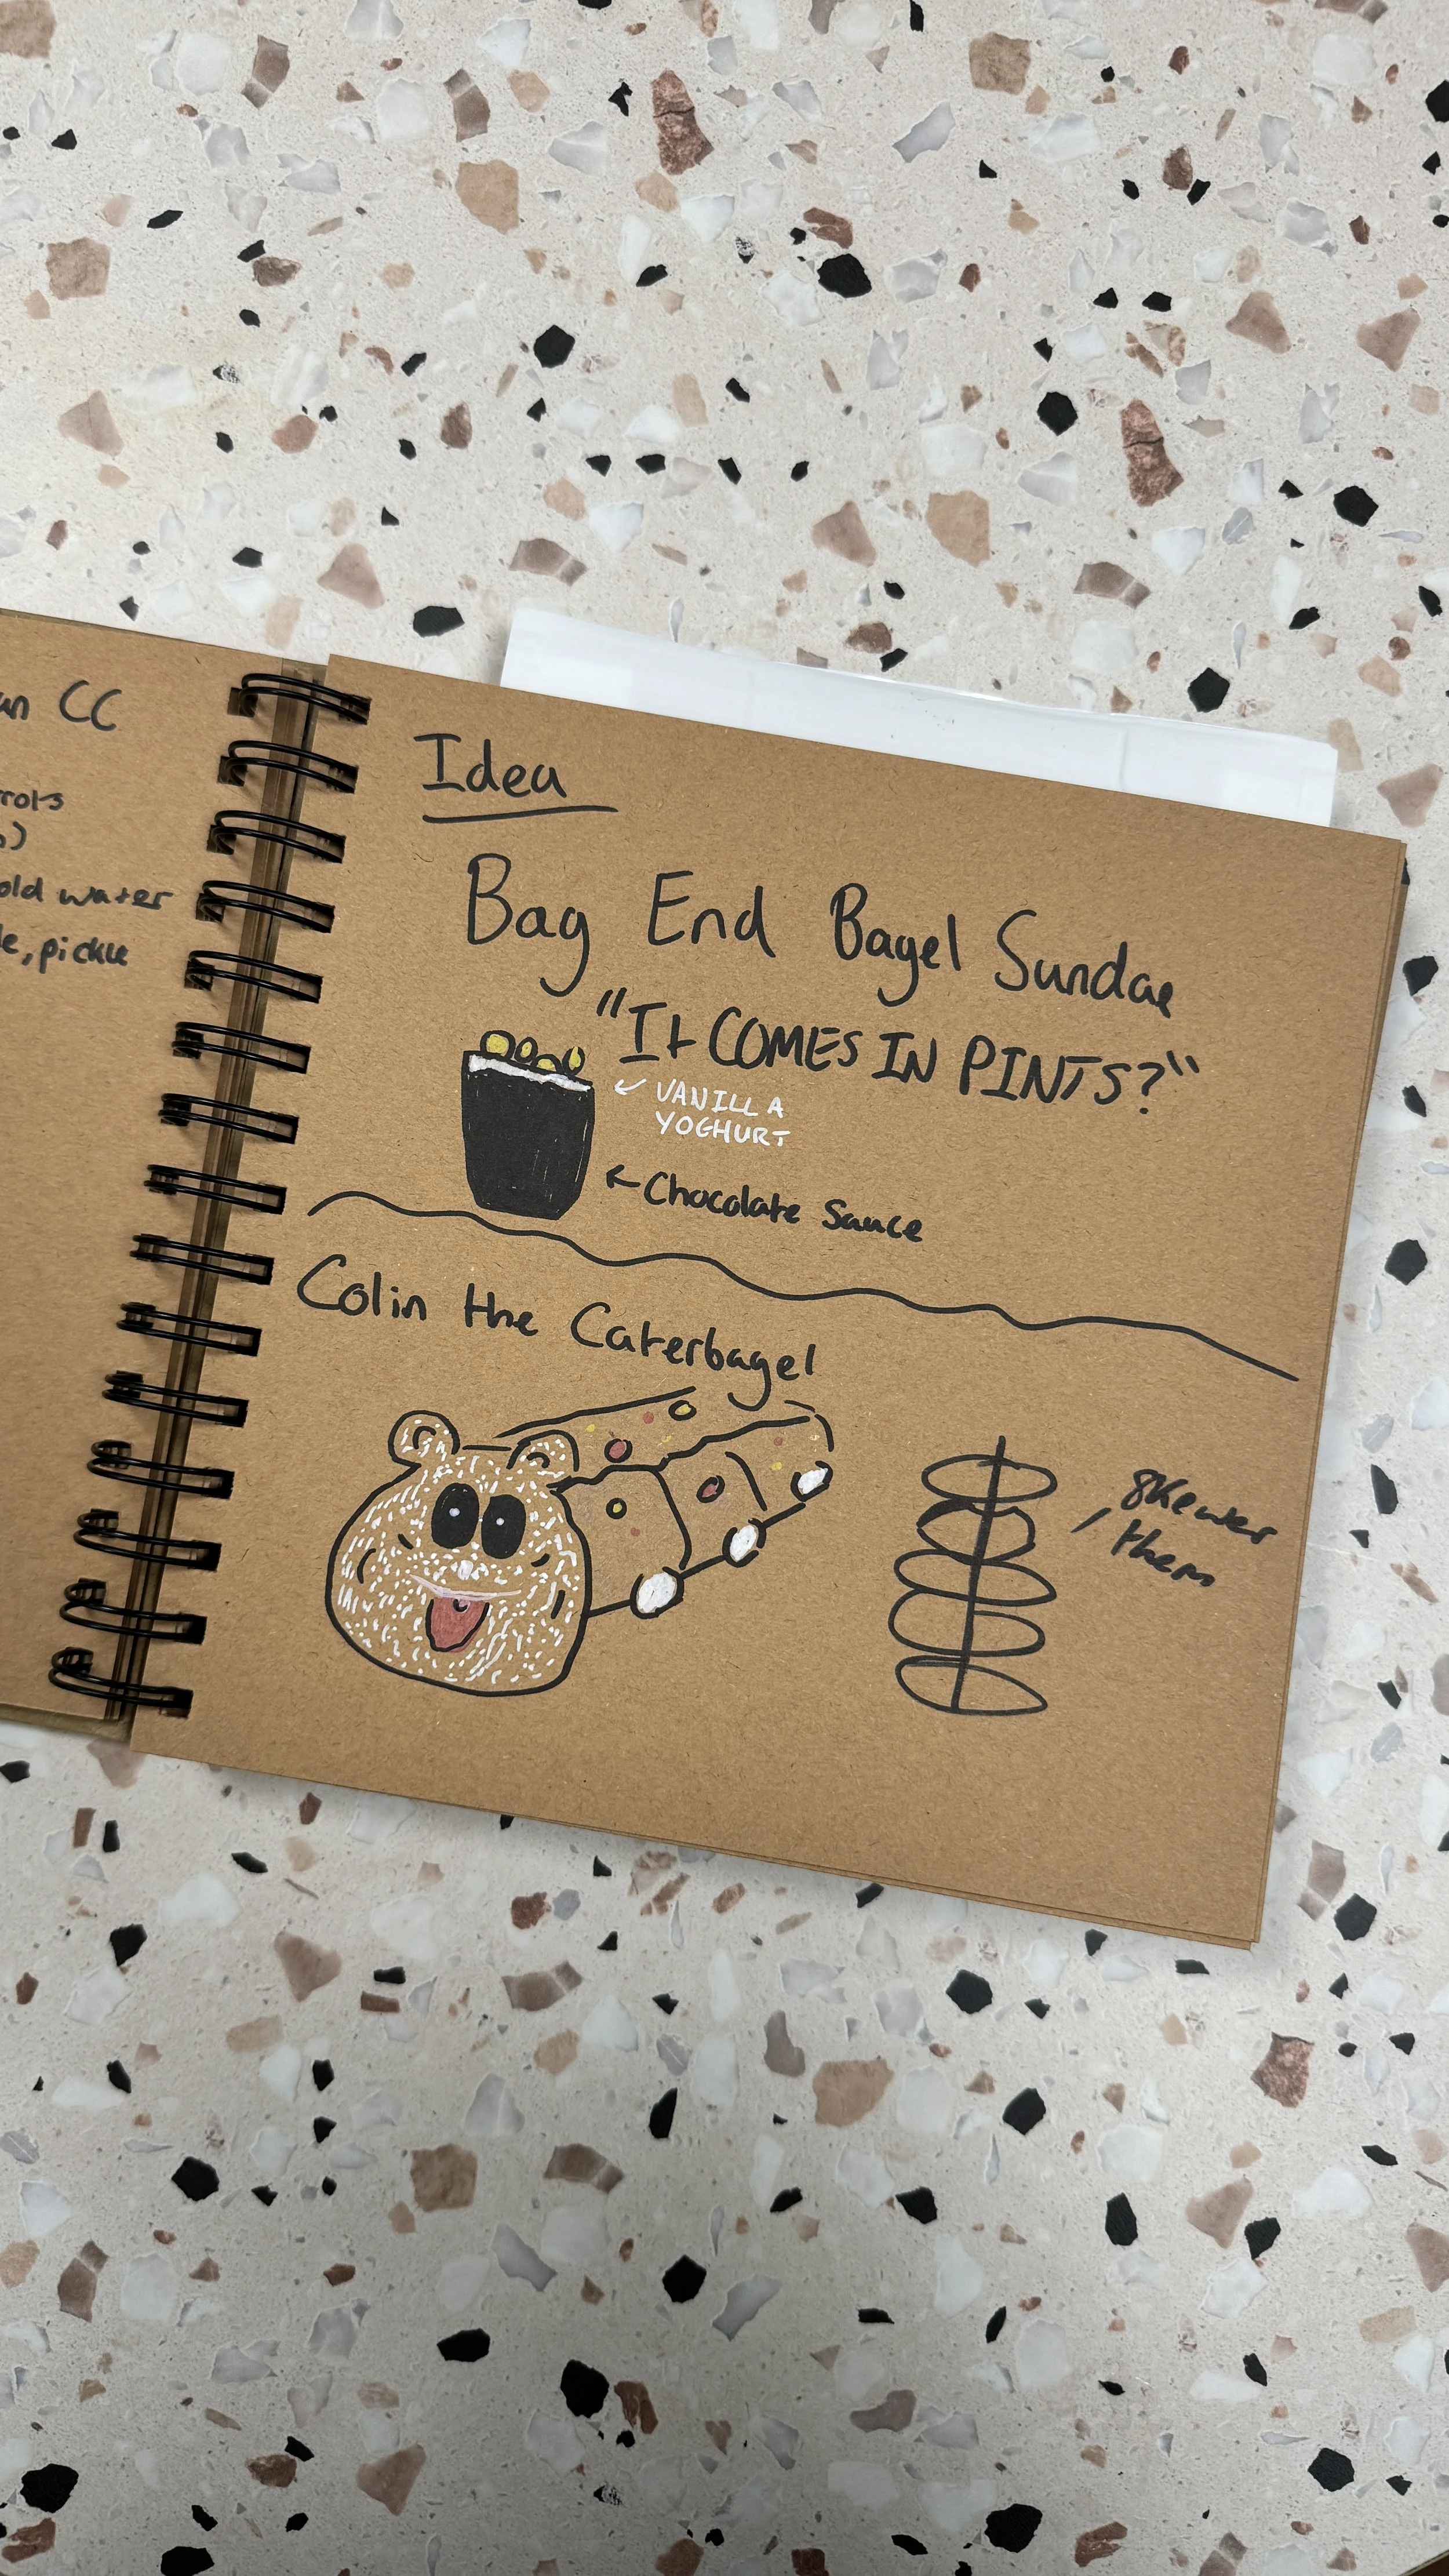 CC
old water
pickle
Idea
Bag End Bagel Sundae
"It COMES IN PINTS?"
VANILLA
YOGHURT
Chocolate Sauce
Colin the Caterbagel
Skewer
them